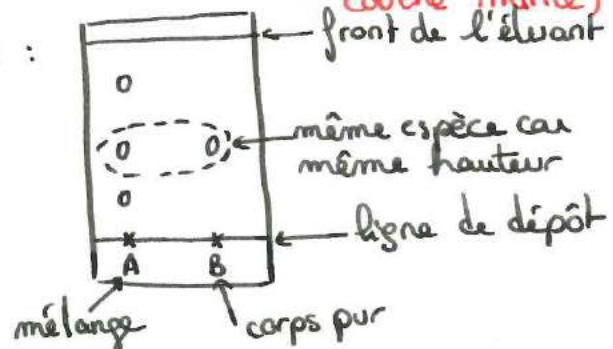 couche mince)
:
front de l'éluant
même espèce car
même hauteur
ligne de dépôt
A B
mélange
corps pur